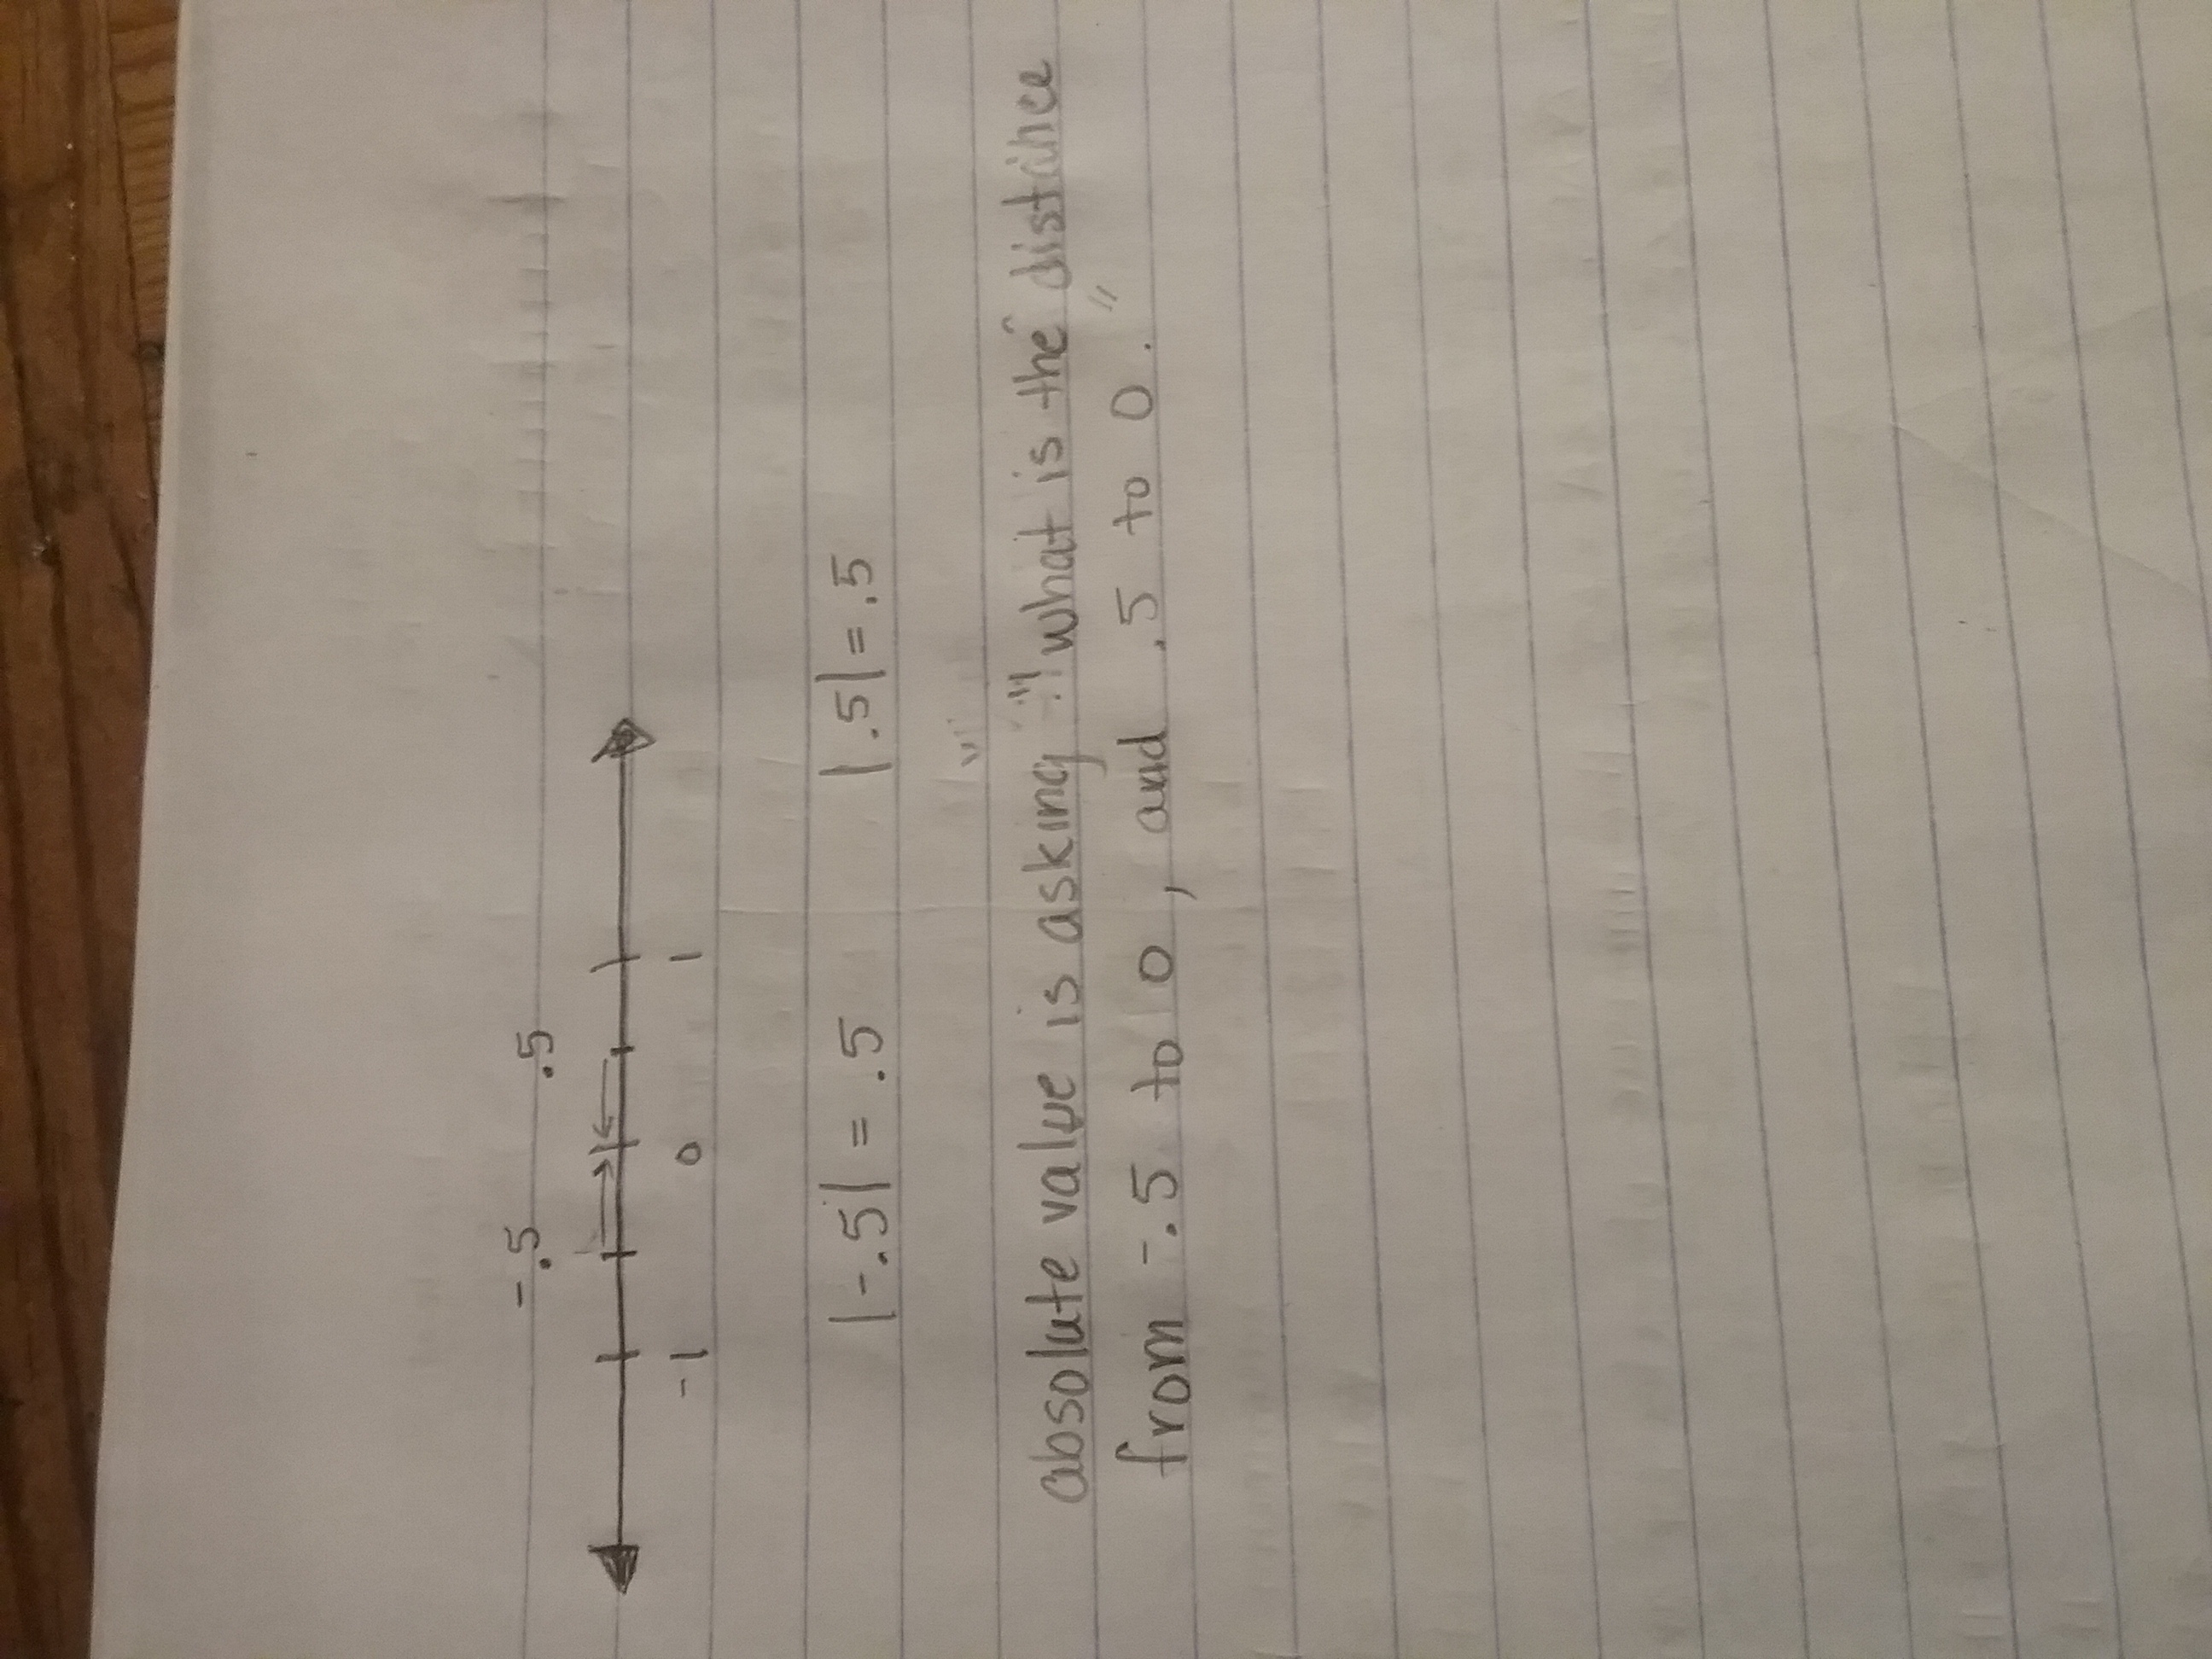 -.5 .5
-1 0 1
|-.5| = .5 |.5| = .5
absolute value is asking "what is the distance
from -.5 to 0, and .5 to 0."